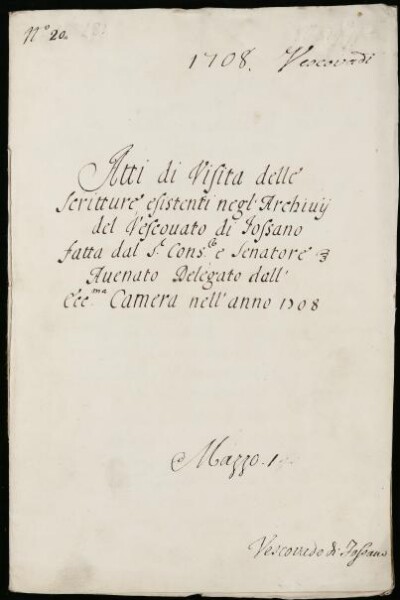 N.º 20.
1708. Vescovadi
Atti di Visita delle
Scritture esistenti negl'Archivij
del Vescouato di Fossano
fatta dal S.r Cons.re e Senatore
Auenato Delegato dall'
Ecc.ma Camera nell'anno 1708
Mazzo. 1
Vescovado di Fossano